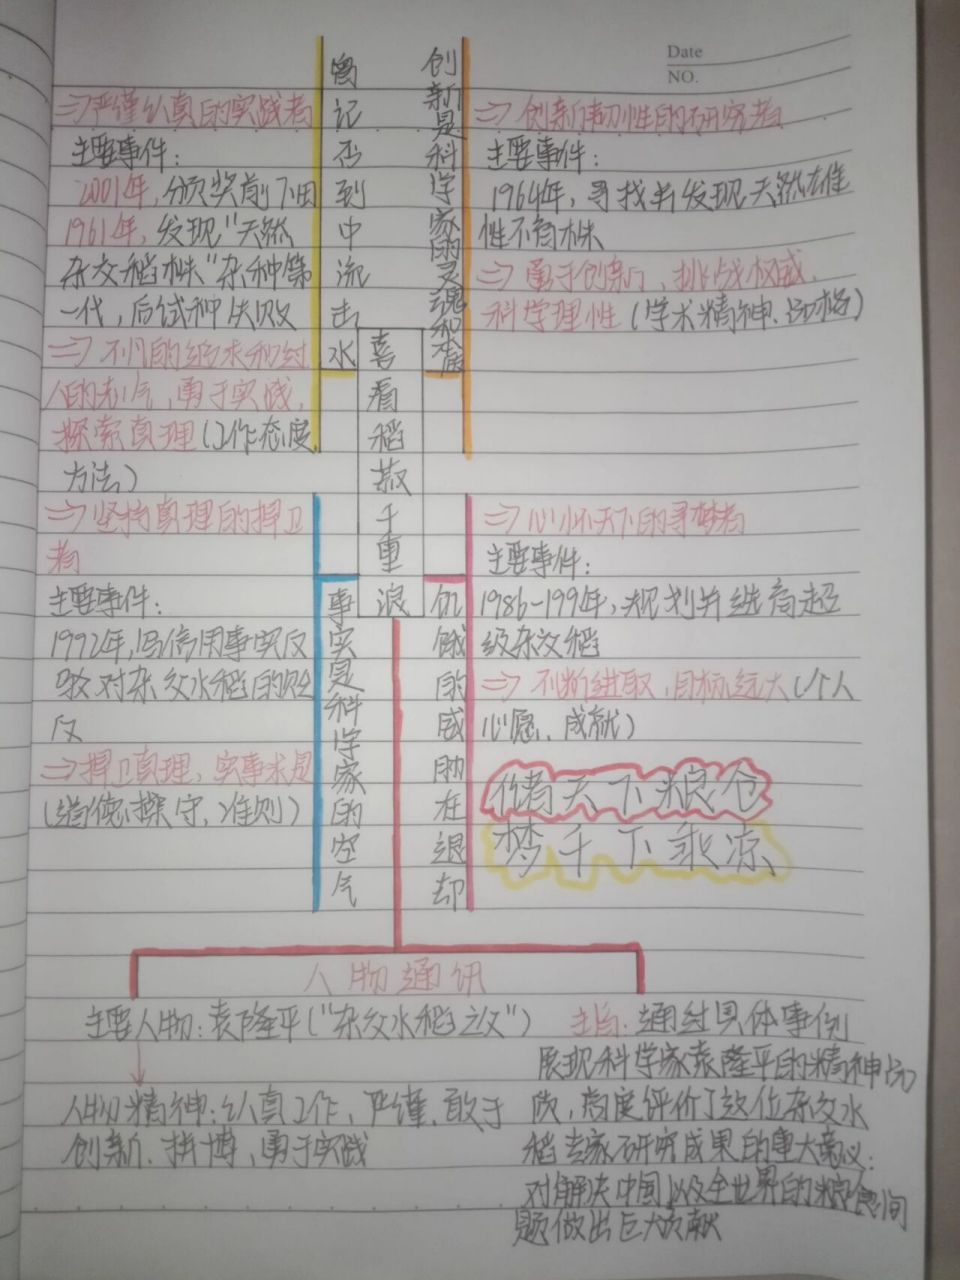 Date
NO.
曾记否到中流击水
⇒严谨认真的实践者
主要事件：
2001年，颁奖前下田
1961年，发现"天然
杂交稻株"杂种第
一代，后试种失败
⇒不凡的
人的勇气，勇于实践，
探索真理（工作态度，
方法）
创新是科学家的灵魂和本质
⇒创新韧性的研究者
主要事件：
1964年，寻找并发现天然雄
性不育株
⇒勇于创新，挑战权威，
科学理性（学术精神、品格）
喜看稻菽千重浪
⇒坚持真理的捍卫
者
主要事件：
1992年，写信用事实反
驳对杂交水稻的贬
⇒捍卫真理，实事求是
（道德操守，准则）
事实是科学家的空气
饥饿的威胁在退却
⇒心怀天下的寻梦者
主要事件：
1986-199年，规划并进育超
级杂交稻
⇒不断进取，目标远大（个人
心愿、成就）
储天下粮仓
梦千下乘凉
人物通讯
主要人物：袁隆平（"杂交水稻之父"）
↓
人物精神：认真工作，严谨、敢于
创新、拼搏，勇于实践
主旨：通过具体事例
展现科学家袁隆平的精神品
质，高度评价了这位杂交水
稻专家研究成果的重大意义：
对解决中国以及全世界的粮食问
题做出巨大贡献